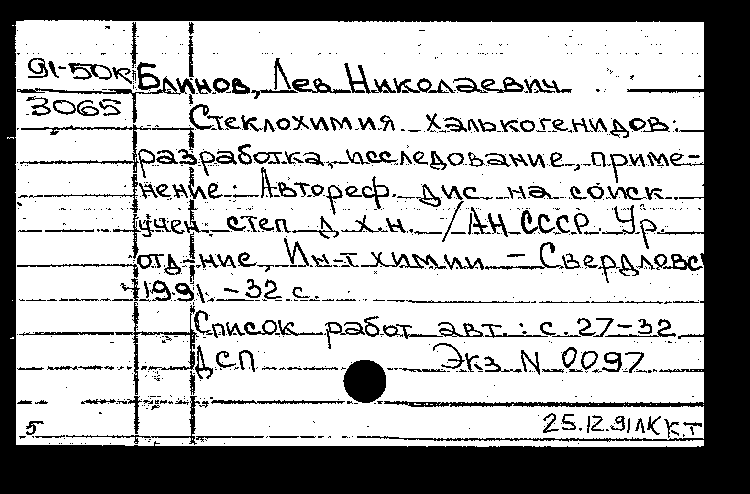 91-50к Блинов, Лев Николаевич
3065
Стеклохимия халькогенидов:
разработка, исследование, приме-
нение: Автореф. дис на соиск
учен. степ д х.н. /АН СССР. Ур.
отд-ние, Ин-т химии - Свердловс
1991. - 32 с.
Список работ авт.: с. 27-32
ДСП Экз N 0097
5 25.12.91 ЛК К.Т